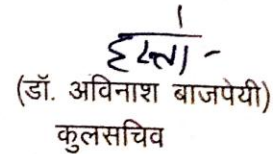 हस्ता -
(डॉ. अविनाश बाजपेयी)
कुलसचिव